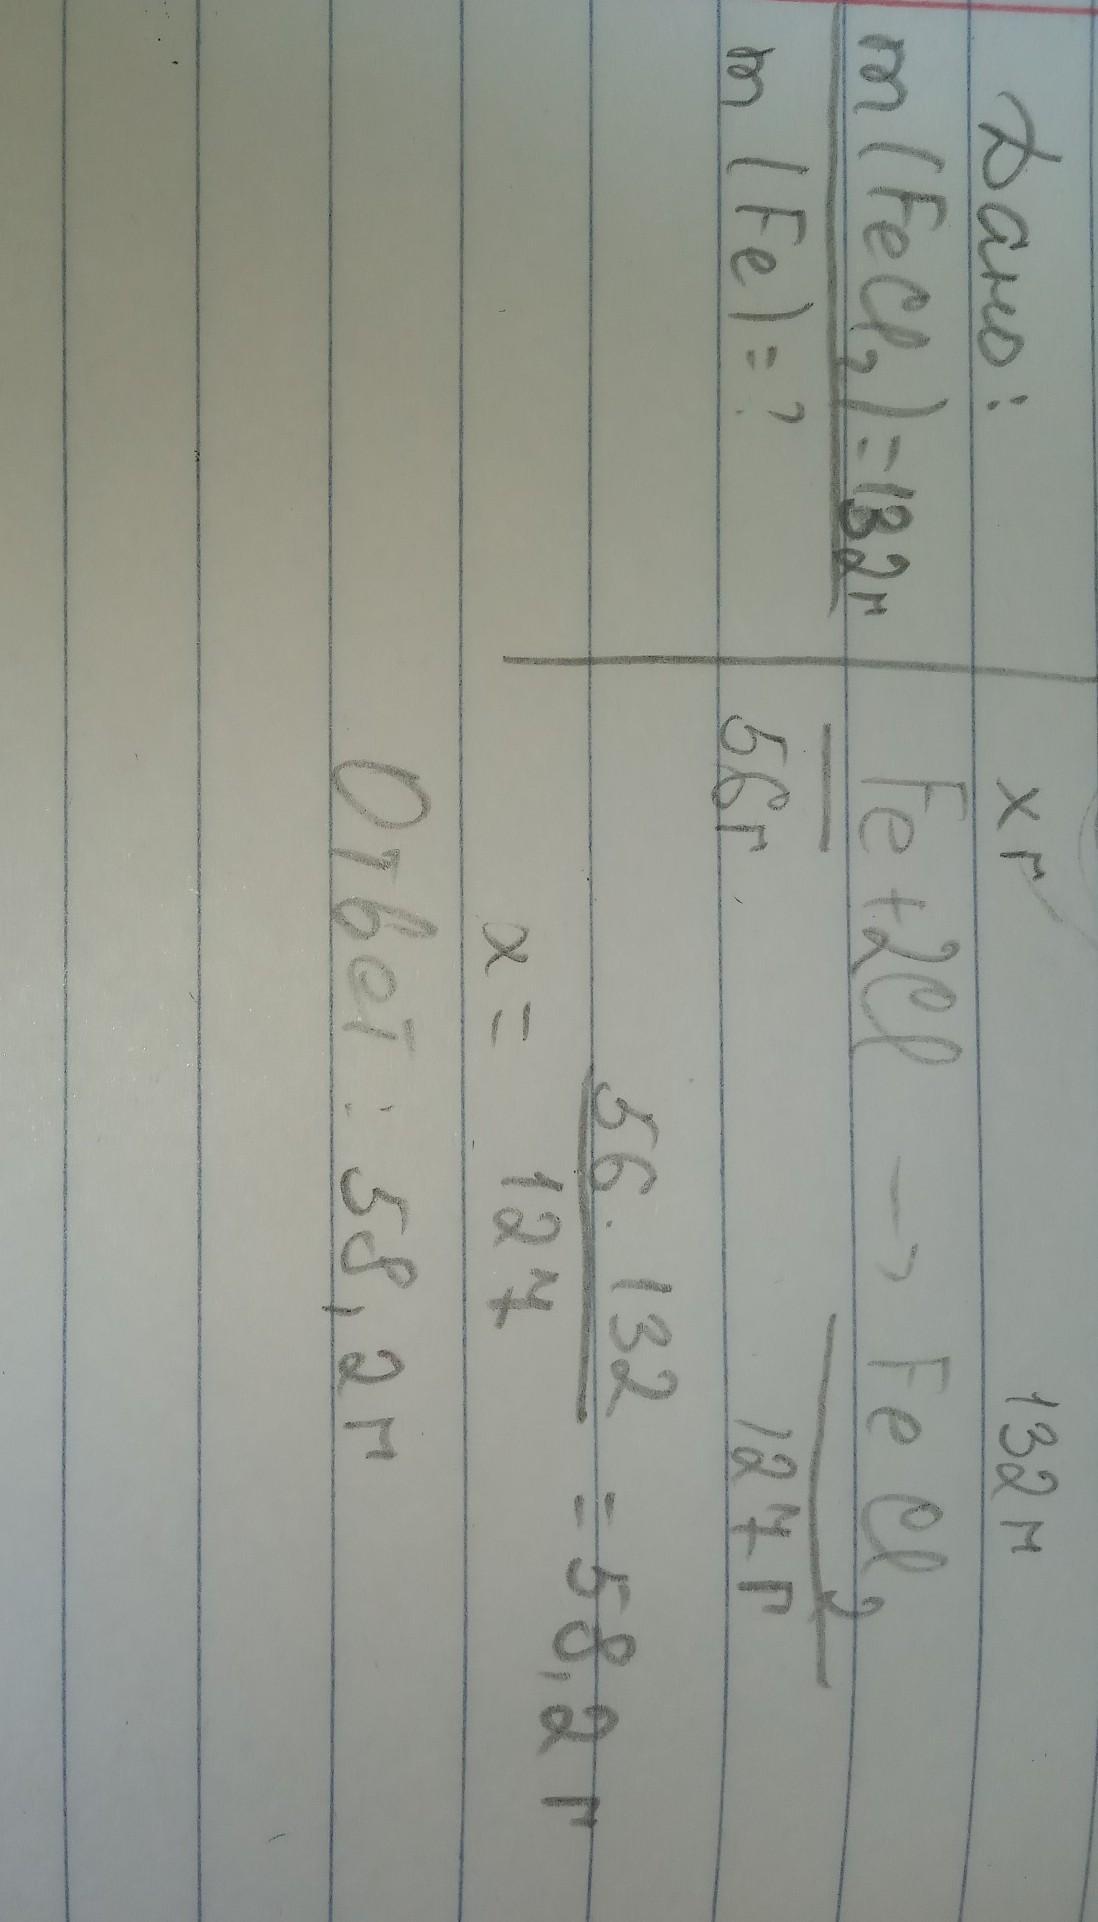 Дано:
m (FeCl2) = 132г
m (Fe) = ?
x г 132г
Fe + 2Cl → FeCl2
56г 127г
x = 56 · 132 / 127 = 58,2 г
Ответ: 58,2 г